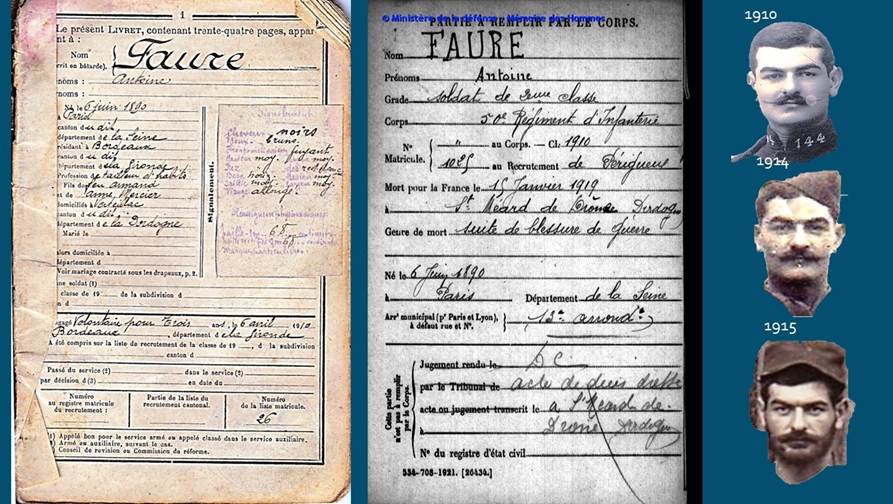 1
Le présent LIVRET, contenant trente-quatre pages, appar
nt à :
Nom
crit en bâtarde). Faure
noms : Antoine
noms :
Né le 6 juin 1890
Paris
canton d u dit
département d e la Seine
résidant à Bordeaux
canton d u dit
département d e la Gironde
Profession de tailleur d'habits
Fils de feu armand
et de anne Mercier
domiciliés à Verteillac
canton d u dit
département d e la Dordogne
Marié le
Signalement.
Signalement
Cheveux noirs
Yeux bruns
fuyant
moy. moy.
rectiligne
moy.
moy. moy.
Visage allongé
68
valors domiciliés à
département d
Voir mariage contracté sous les drapeaux, p. 2.
me soldat (1)
classe de 19 de la subdivision d
n d
Volontaire pour Trois ans, le 6 avril 1910
Bordeaux département d e la Gironde
A été compris sur la liste de recrutement de la classe de 19 , de la subdivision
canton d
Passé du service (2) dans le service (2)
par décision d (3) en date du
Numéro
au registre matricule
du recrutement :
Partie de la liste
du recrutement cantonal.
Numéro
de la liste matricule.
26
(1) Appelé bon pour le service armé ou appelé classé dans le service auxiliaire.
(2) Armé ou auxiliaire, suivant le cas.
(3) Conseil de revision ou Commission de réforme.
© Ministère de la défense - Mémoire des Hommes
PARTIE A REMPLIR PAR LE CORPS.
Nom FAURE
Prénoms Antoine
Grade soldat de 2eme classe
Corps 50e Régiment d'Infanterie
N° Matricule. " au Corps. — Cl. 1910
1025 au Recrutement de Périgueux
Mort pour la France le 15 Janvier 1919
à St Méard de Drône Dordogne
Genre de mort suite de blessure de guerre
Né le 6 Juin 1890
à Paris Département de la Seine
Arr' municipal (p' Paris et Lyon),
à défaut rue et N°. 13e arrond't
Cette partie
n'est pas à remplir
par le Corps.
Jugement rendu le D C
par le Tribunal de acte de décès dressé
acte ou jugement transcrit le a St Méard de
à Drone Dordogne
N° du registre d'état civil
534-708-1921. [26434.]
1910
144
1914
1915